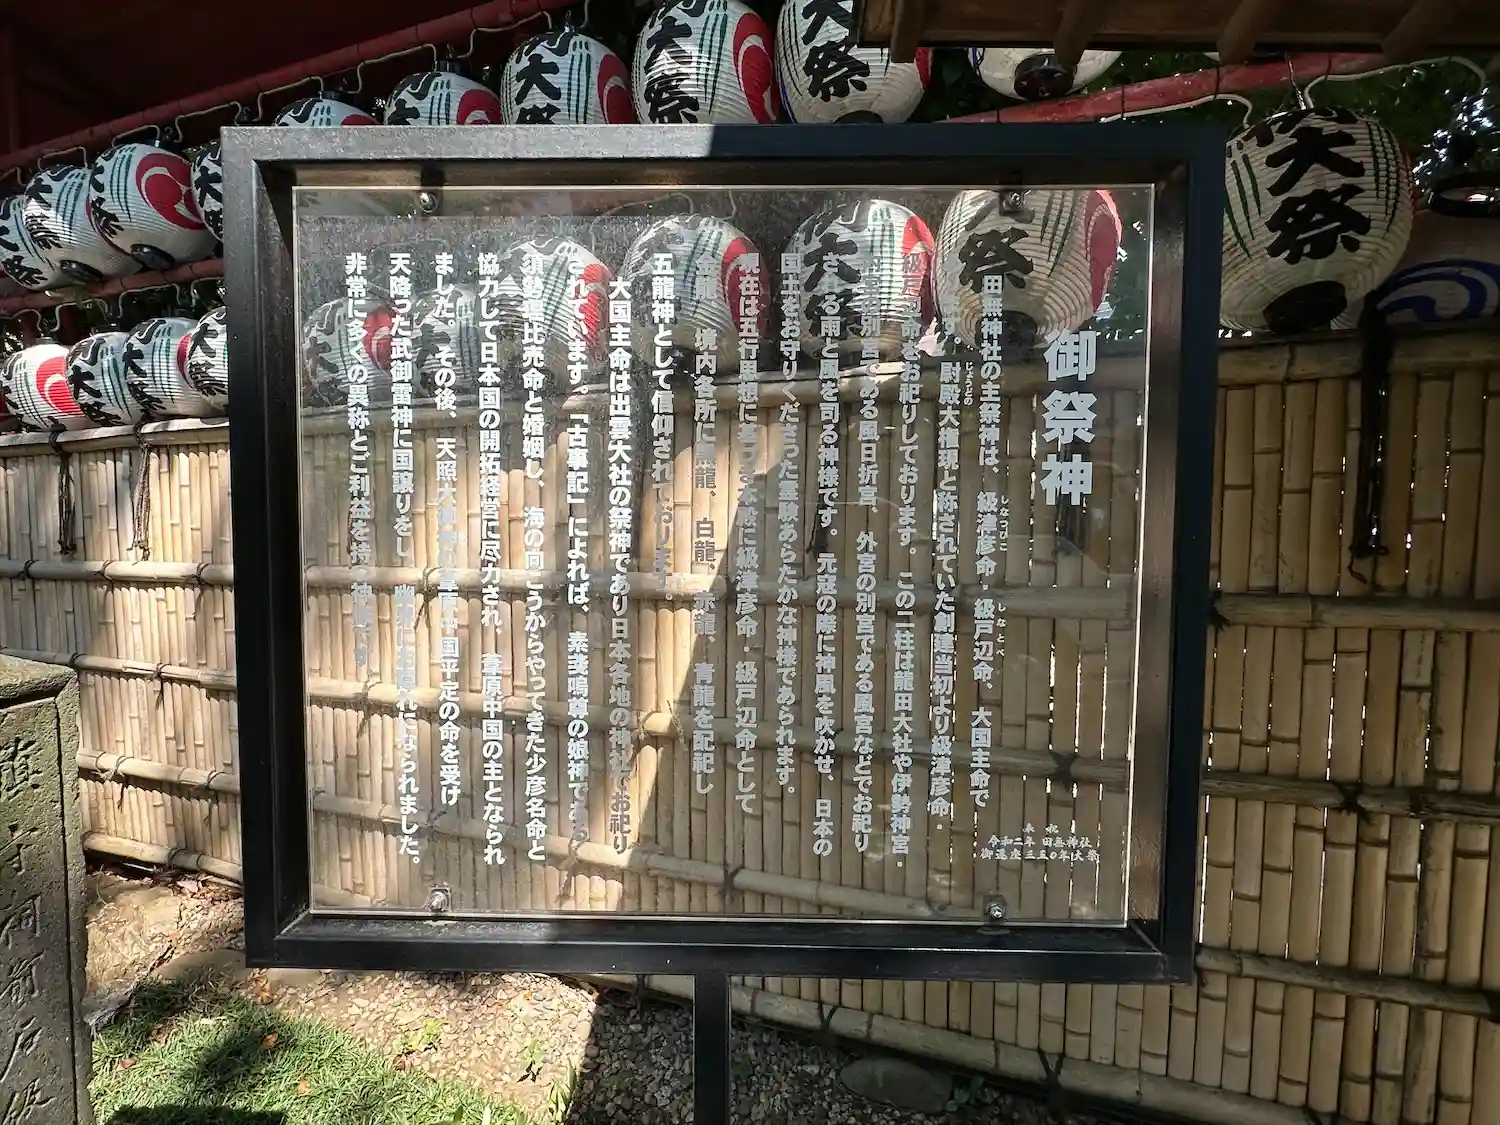 御祭神
田無神社の主祭神は、級津彦命・級戸辺命、大国主命で
しなつひこ
しなとべ
す。尉殿大権現と称されていた創建当初より級津彦命・
じょうどの
級戸辺命をお祀りしております。この二柱は龍田大社や伊勢神宮・
別宮である風日祈宮、外宮の別宮である風宮などでお祀り
される雨と風を司る神様です。元寇の際に神風を吹かせ、日本の
国土をお守りくださった霊験あらたかな神様であられます。
現在は五行思想に基づき本殿に級津彦命・級戸辺命として
金龍、境内各所に黒龍、白龍、赤龍、青龍を配祀し
五龍神として信仰されております。
大国主命は出雲大社の祭神であり日本各地の神社でお祀り
されています。「古事記」によれば、素戔嗚尊の娘神である
須勢理比売命と婚姻し、海の向こうからやってきた少彦名命と
協力して日本国の開拓経営に尽力され、葦原中国の主となられ
ました。その後、天照大御神の葦原中国平定の命を受け
天降った武御雷神に国譲りをし、幽界にお隠れになられました。
非常に多くの異称とご利益を持つ神様です。
奉祝
令和二年 田無神社
御遷座三五〇年大祭
大祭
大祭
大祭
大祭
大祭
大祭
大祭
大祭
大祭